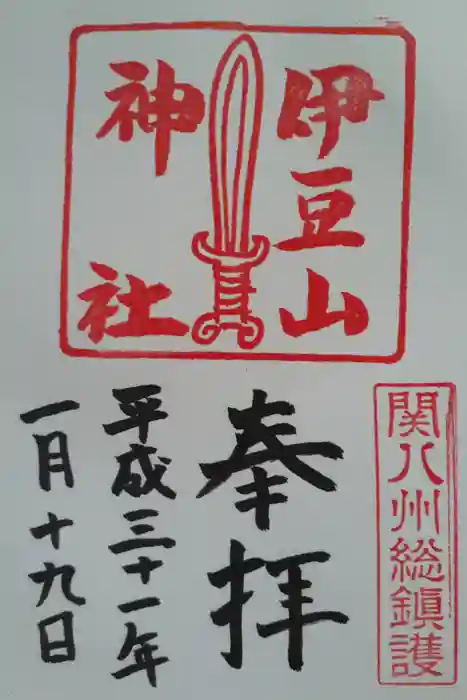 伊豆山
神社
関八州総鎮護
奉拝
平成三十一年
一月十九日